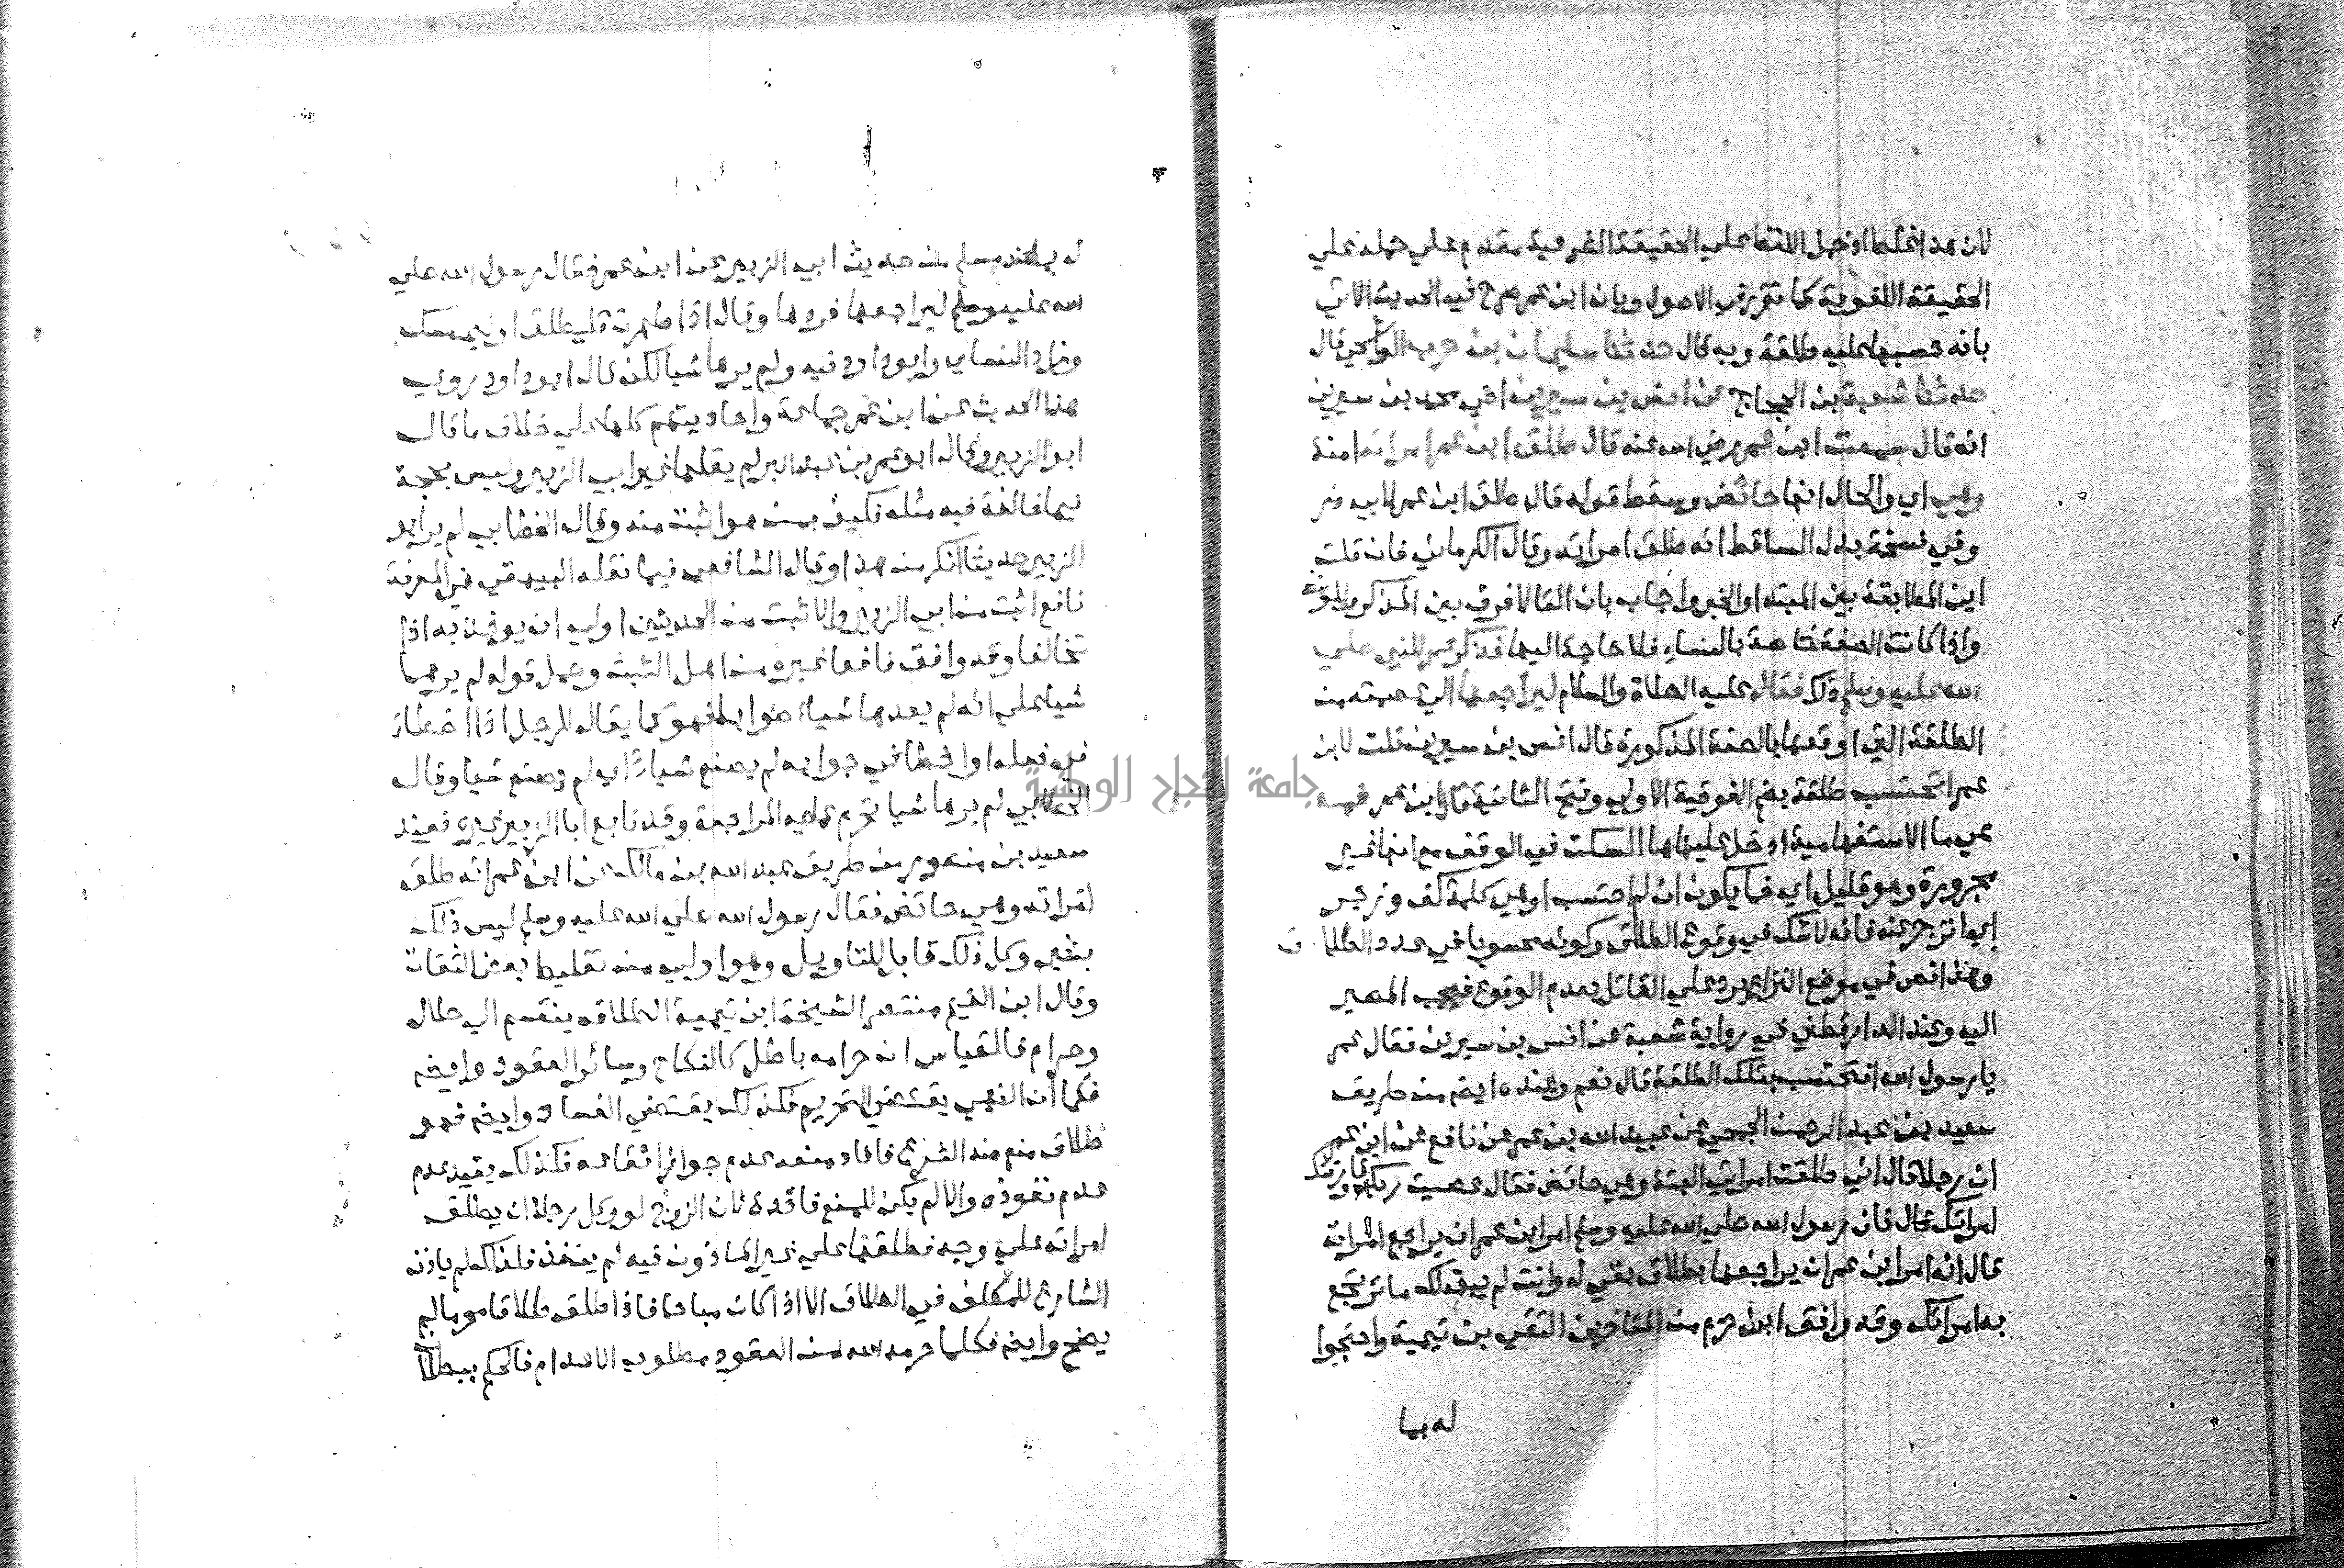 لان هذا غلط اذ حمل اللفظ علي الحقيقة الشرعية مقدم علي حمله علي
الحقيقة اللغوية كما تقرر في الاصول وبان ابن عمر صرح في الحديث الاتي
بانه حسبها عليه طلقة وبه قال حدثنا سليمان بن حرب الواشحي قال
حدثنا شعبة بن الحجاج عن انس بن سيرين اخي محمد بن سيرين
انه قال سمعت ابن عمر رضي الله عنه قال طلق ابن عمر امراته امنة
وهي اي والحال انها حائض وسقط قوله قال طلق ابن عمر لابي ذر
وفي نسخة بدل الساقط انه طلق امراته وقال الكرماني فان قلت
اين المطابقة بين المبتدا والخبر واجاب بان التا لافرق بين المذكر والمؤنث
واذا كانت الصفة خاصة بالنساء فلا حاجة اليها فذكر عمر للنبي صلي
الله عليه وسلم ذلك فقال عليه الصلاة والسلام ليراجعها الي عصمته من
الطلقة التي اوقعها بالصفة المذكورة قال انس بن سيرين قلت لابن
عمر اتحتسب طلقة بضم الفوقية الاولي وفتح الثانية قال ابن عمر فمه
هي ما الاستفهامية ادخل عليها ها السكت في الوقف مع انها غير
مجرورة وهو قليل اي فما يكون ان لم احتسب او هي كلمة كف وزجر
اي انزجر عنه فانه لا شك في وقوع الطلاق وكونه محسوبا في عدد الطلاق
وهذا نص في موضع النزاع يرد علي القائل بعدم الوقوع فيجب المصير
اليه وعند الدارقطني في رواية شعبة عن انس بن سيرين فقال عمر
يا رسول الله افتحتسب بتلك الطلقة قال نعم وعنده ايضا من طريق
سعيد بن عبد الرحمن الجمحي عن عبيد الله بن عمر عن نافع عن ابن عمر
ان رجلا قال اني طلقت امراتي البتة وهي حائض فقال عصيت ربك وفارقت
امراتك قال فان رسول الله صلي الله عليه وسلم امر ابن عمر ان يراجع امراته
قال انه امر ابن عمر ان يراجعها بطلاق بقي له وانت لم يبق لك ما ترتجع
به امراتك وقد وافق ابن حزم من المتاخرين التقي بن تيمية واحتجوا
له بما
له بما عند مسلم من حديث ابي الزبير عن ابن عمر فقال رسول الله صلي
الله عليه وسلم ليراجعها فردها وقال اذا طهرت فليطلق او ليمسك
وزاد النسائي وابو داود فيه ولم يرها شيا لكن قال ابو داود روي
هذا الحديث عن ابن عمر جماعة واحاديثهم كلها علي خلاف ما قال
ابو الزبير وقال ابو عمر بن عبد البر لم يقلها غير ابي الزبير وليس بحجة
فيما خالفه فيه مثله فكيف بمن هو اثبت منه وقال الخطابي لم يرو ابو
الزبير حديثا انكر من هذا وقال الشافعي فيما نقله البيهقي في المعرفة
نافع اثبت من ابي الزبير والاثبت من الحديثين اولي ان يوخذ به اذا
تخالفا وقد وافق نافعا غيره من اهل التثبت وحمل قوله لم يرها
شيا علي انه لم يعدها شيا صوابا فهو كما يقال للرجل اذا اخطا
في فعله او اخطا في جوابه لم يصنع شيا اي لم يصنع شيا وقال
الخطابي لم يرها شيا تحرم عليه المراجعة وقد تابع ابا الزبير غيره فعند
سعيد بن منصور من طريق عبد الله بن مالك عن ابن عمر انه طلق
امراته وهي حائض فقال رسول الله صلي الله عليه وسلم ليس ذلك
بشي وكل ذلك قابل للتاويل وهو اولي من تغليط بعض الثقات
وقال ابن القيم منتصرا لشيخه ابن تيمية الطلاق ينقسم الي حلال
وحرام فالقياس ان حرامه باطل كالنكاح وسائر العقود وايضا
فكما ان النهي يقتضي التحريم فكذلك يقتضي الفساد وايضا فهو
طلاق منع منه الشرع فافاد منعه عدم جواز ايقاعه فكذلك يفيد عدم
عدم نفوذه والا لم يكن للمنع فائدة لان الزوج لو وكل رجلا ان يطلق
امراته علي وجه فطلقها علي غير الماذون فيه لم ينفذ فلذلك لم ياذن
الشارع للمكلف في الطلاق الا اذا كان مباحا فاذا طلق طلاقا محرما لم
يصح وايضا فكلما حرمه الله من العقود مطلوب الاعدام فالحكم ببطلان
جامعة النجاح الوطنية